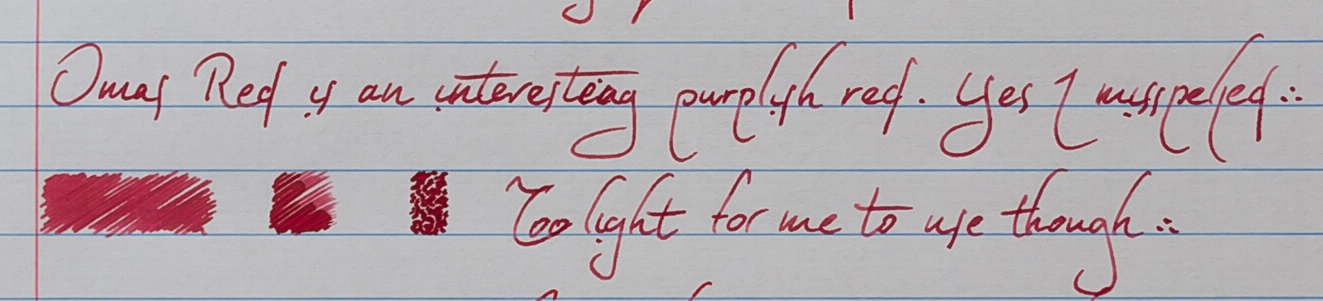 Omas Red is an interesteing purplish red. Yes I misspeled ∴
Too light for me to use though ∴